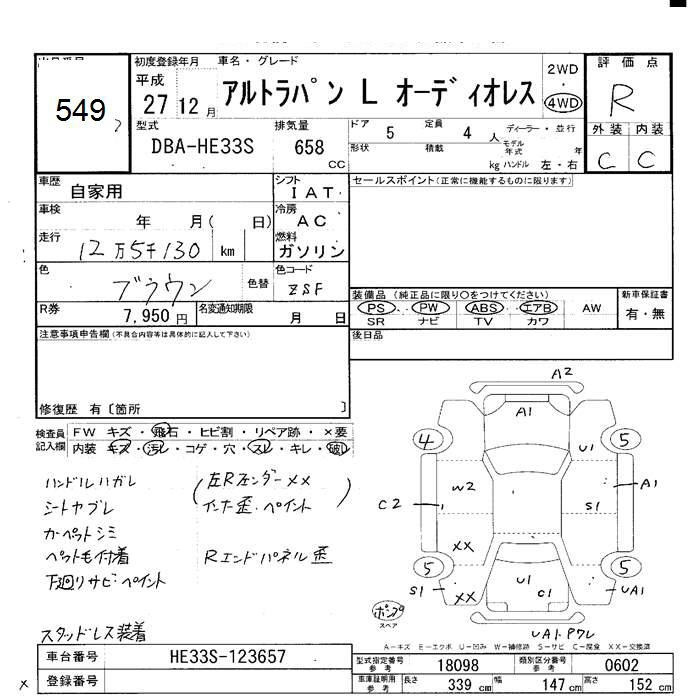 549
初度登録年月
平成
27 12 月
車名・グレード
アルトラパン L オーディオレス
2WD
・
4WD
評価点
R
外装 内装
C C
型式
DBA-HE33S
排気量
658
cc
ドア 5 定員 4 人
形状 積載 kg
ディーラー・並行
モデル年式 年
ハンドル 左・右
車歴
自家用
シフト
I AT
車検
年 月( 日)
冷房
AC
走行
12万5千130 km
燃料
ガソリン
色
ブラウン
色替
色コード
ZSF
R券
7,950 円
名変通知期限
月 日
セールスポイント(正常に機能するものに限ります)
装備品 (純正品に限り○をつけてください)
PS. PW ABS エアB AW
SR ナビ TV カワ
新車保証書
有・無
後日品
注意事項申告欄(不具合内容等は具体的に記入して下さい)
修復歴 有〔箇所 〕
検査員記入欄
FW キズ・飛石・ヒビ割・リペア跡・×要
内装 キズ・汚レ・コゲ・穴・スレ・キレ・破レ
ハンドルハガレ
シートヤブレ
カーペットシミ
ペット毛付着
下廻りサビ・ペイント
(左Rフェンダー XX
インナー歪・ペイント)
Rエンドパネル歪
スタッドレス装着
A2
A1
4
5
U1
W2
A1
C2
S1
XX
5
5
S1
XX
U1
C1
UA1
ポンプ
スペア
UA1・Pワレ
A-キズ E-エクボ U-凹み W-補修跡 S-サビ C-腐食 XX-交換済
車台番号
HE33S-123657
登録番号
型式指定番号 参考
18098
類別区分番号 参考
0602
車庫証明用 参考
長さ 339 cm 幅 147 cm 高さ 152 cm